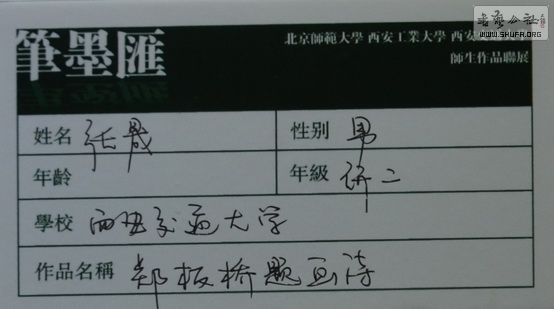 書藝公社
WWW.SHUFA.ORG
筆墨匯
北京師範大學 西安工業大學 西安
師生作品聯展
姓名 張晟 性别 男
年齡 年級 研二
學校 西安交通大学
作品名稱 郑板桥题画诗